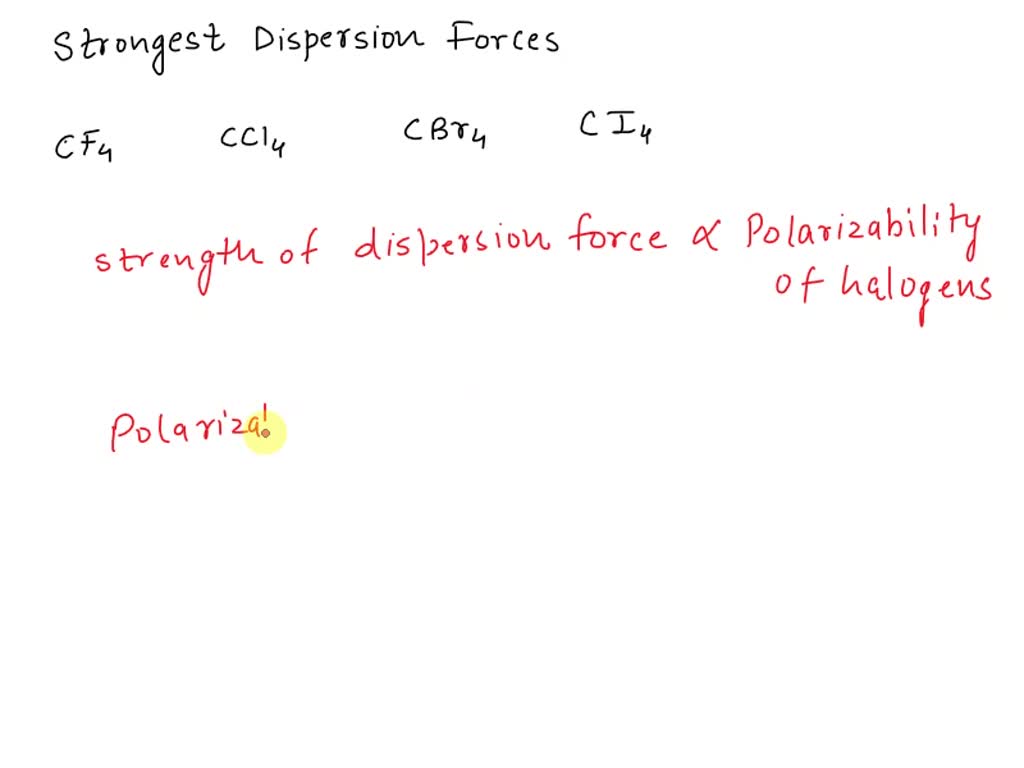 Strongest Dispersion Forces
CF4 CCl4 CBr4 CI4
strength of dispersion force ∝ Polarizability
of halogens
Polariza